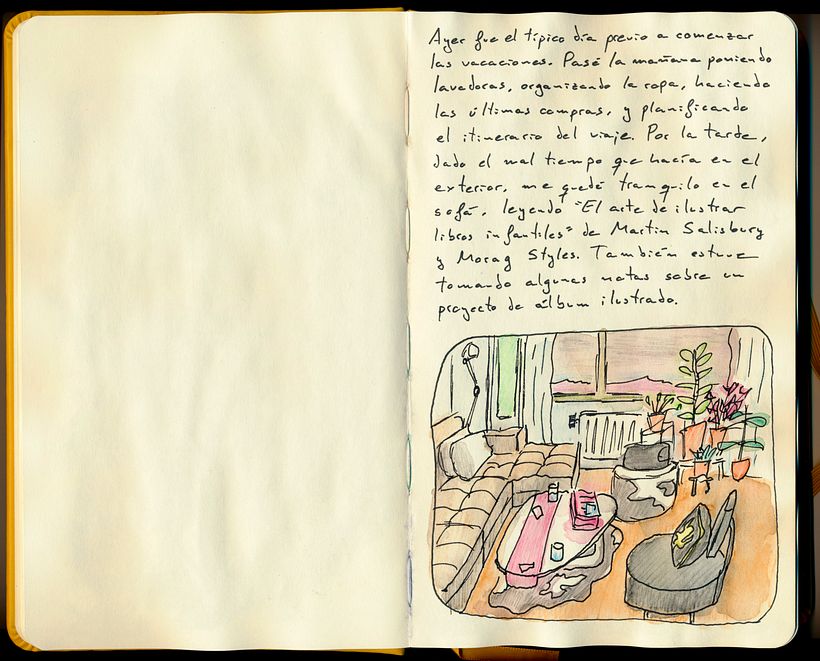 Ayer fue el típico día previo a comenzar
las vacaciones. Pasé la mañana poniendo
lavadoras, organizando la ropa, haciendo
las últimas compras, y planificando
el itinerario del viaje. Por la tarde,
dado el mal tiempo que hacía en el
exterior, me quedé tranquilo en el
sofá, leyendo "El arte de ilustrar
libros infantiles" de Martin Salisbury
y Morag Styles. También estuve
tomando algunas notas sobre un
proyecto de álbum ilustrado.